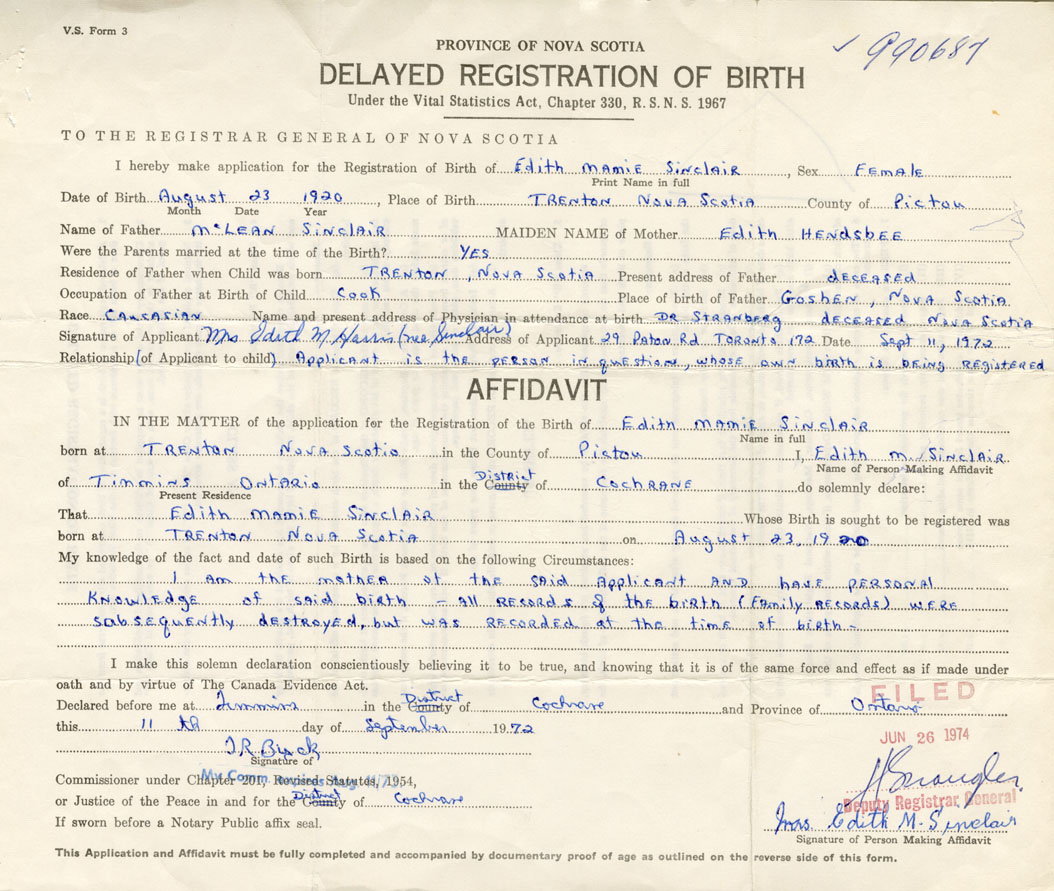 V.S. Form 3
✓ 990687
PROVINCE OF NOVA SCOTIA
DELAYED REGISTRATION OF BIRTH
Under the Vital Statistics Act, Chapter 330, R. S. N. S. 1967
TO THE REGISTRAR GENERAL OF NOVA SCOTIA
I hereby make application for the Registration of Birth of Edith Mamie Sinclair, Sex Female
Print Name in full
Date of Birth August 23 1920, Place of Birth Trenton Nova Scotia County of Pictou
Month Date Year
Name of Father McLean Sinclair MAIDEN NAME of Mother Edith Hendsbee
Were the Parents married at the time of the Birth? Yes
Residence of Father when Child was born Trenton, Nova Scotia Present address of Father deceased
Occupation of Father at Birth of Child Cook Place of birth of Father Goshen, Nova Scotia
Race Caucasian Name and present address of Physician in attendance at birth Dr Stranberg deceased Nova Scotia
Signature of Applicant Mrs Edith M Harris (nee Sinclair) Address of Applicant 29 Paton Rd Toronto 172 Date Sept 11, 1972
Relationship (of Applicant to child) Applicant is the person in question, whose own birth is being registered
AFFIDAVIT
IN THE MATTER of the application for the Registration of the Birth of Edith Mamie Sinclair
Name in full
born at Trenton Nova Scotia in the County of Pictou I, Edith M. Sinclair
Name of Person Making Affidavit
of Timmins Ontario in the County District of Cochrane do solemnly declare:
Present Residence
That Edith Mamie Sinclair Whose Birth is sought to be registered was
born at Trenton Nova Scotia on August 23, 1920
My knowledge of the fact and date of such Birth is based on the following Circumstances:
I am the mother of the said applicant and have personal
knowledge of said birth – all records of the birth (family records) were
subsequently destroyed, but was recorded at the time of birth –
I make this solemn declaration conscientiously believing it to be true, and knowing that it is of the same force and effect as if made under
oath and by virtue of The Canada Evidence Act.
FILED
Declared before me at Timmins in the County District of Cochrane and Province of Ontario
this 11 th day of September 1972
JUN 26 1974
Signature of
My Comm. expires Aug.
Commissioner under Chapter 201, Revised Statutes, 1954,
or Justice of the Peace in and for the County District of Cochrane
Deputy Registrar General
If sworn before a Notary Public affix seal.
Mrs. Edith M. Sinclair
Signature of Person Making Affidavit
This Application and Affidavit must be fully completed and accompanied by documentary proof of age as outlined on the reverse side of this form.